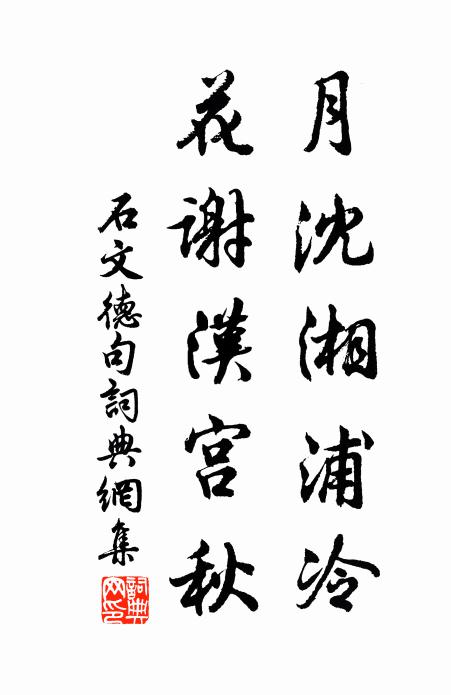 月沈湘浦冷
花謝漢宮秋
石文德句詞典網集
詞典網印